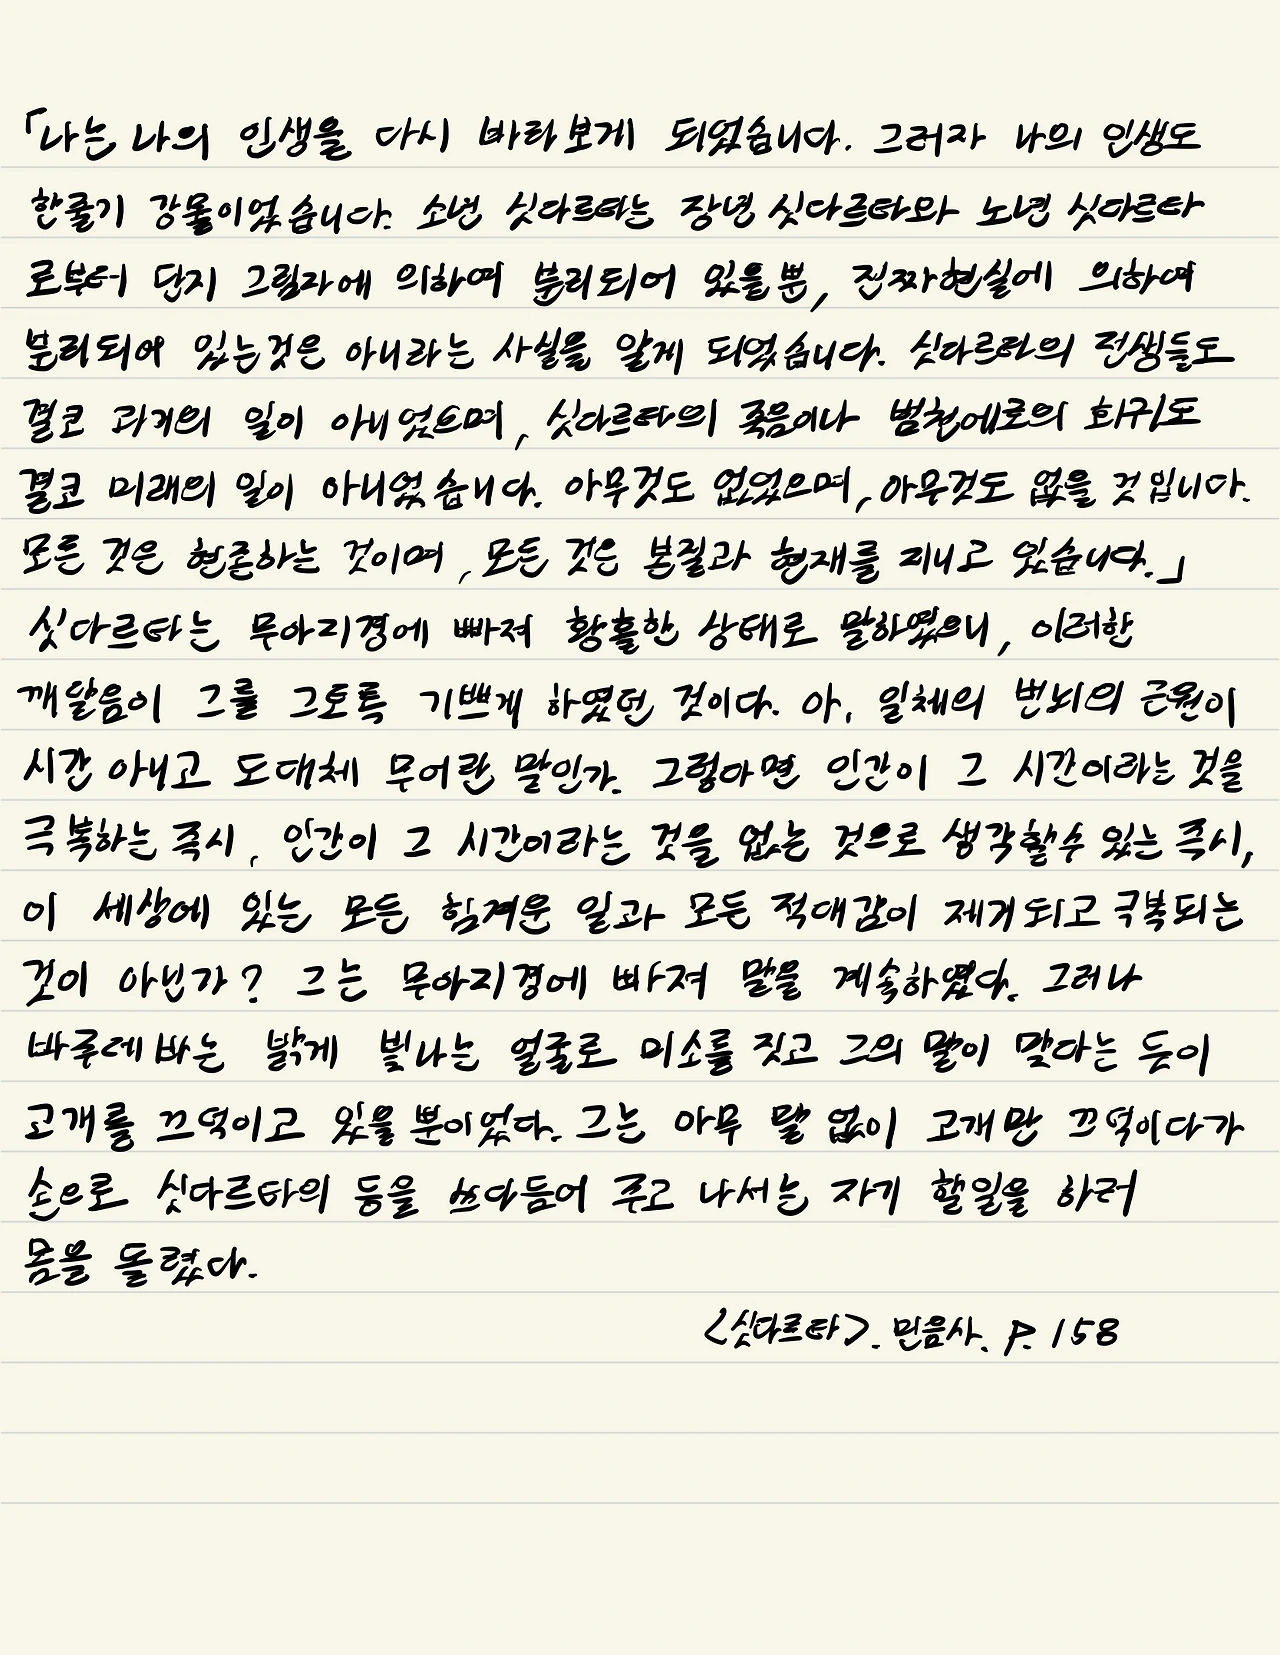 「나는 나의 인생을 다시 바라보게 되었습니다. 그러자 나의 인생도
한줄기 강물이었습니다. 소년 싯다르타는 장년 싯다르타와 노년 싯다르타
로부터 단지 그림자에 의하여 분리되어 있을뿐, 진짜현실에 의하여
분리되어 있는것은 아니라는 사실을 알게 되었습니다. 싯다르타의 전생들도
결코 과거의 일이 아니었으며, 싯다르타의 죽음이나 범천에로의 회귀도
결코 미래의 일이 아니었습니다. 아무것도 없었으며, 아무것도 없을 것입니다.
모든 것은 현존하는 것이며, 모든 것은 본질과 현재를 지니고 있습니다.」
싯다르타는 무아지경에 빠져 황홀한 상태로 말하였으니, 이러한
깨달음이 그를 그토록 기쁘게 하였던 것이다. 아, 일체의 번뇌의 근원이
시간 아니고 도대체 무어란 말인가. 그렇다면 인간이 그 시간이라는 것을
극복하는 즉시, 인간이 그 시간이라는 것을 없는 것으로 생각할수 있는 즉시,
이 세상에 있는 모든 힘겨운 일과 모든 적대감이 제거되고 극복되는
것이 아닌가? 그는 무아지경에 빠져 말을 계속하였다. 그러나
바루데바는 밝게 빛나는 얼굴로 미소를 짓고 그의 말이 맞다는 듯이
고개를 끄덕이고 있을 뿐이었다. 그는 아무 말 없이 고개만 끄덕이다가
손으로 싯다르타의 등을 쓰다듬어 주고 나서는 자기 할일을 하러
몸을 돌렸다.
<싯다르타>. 민음사. P. 158